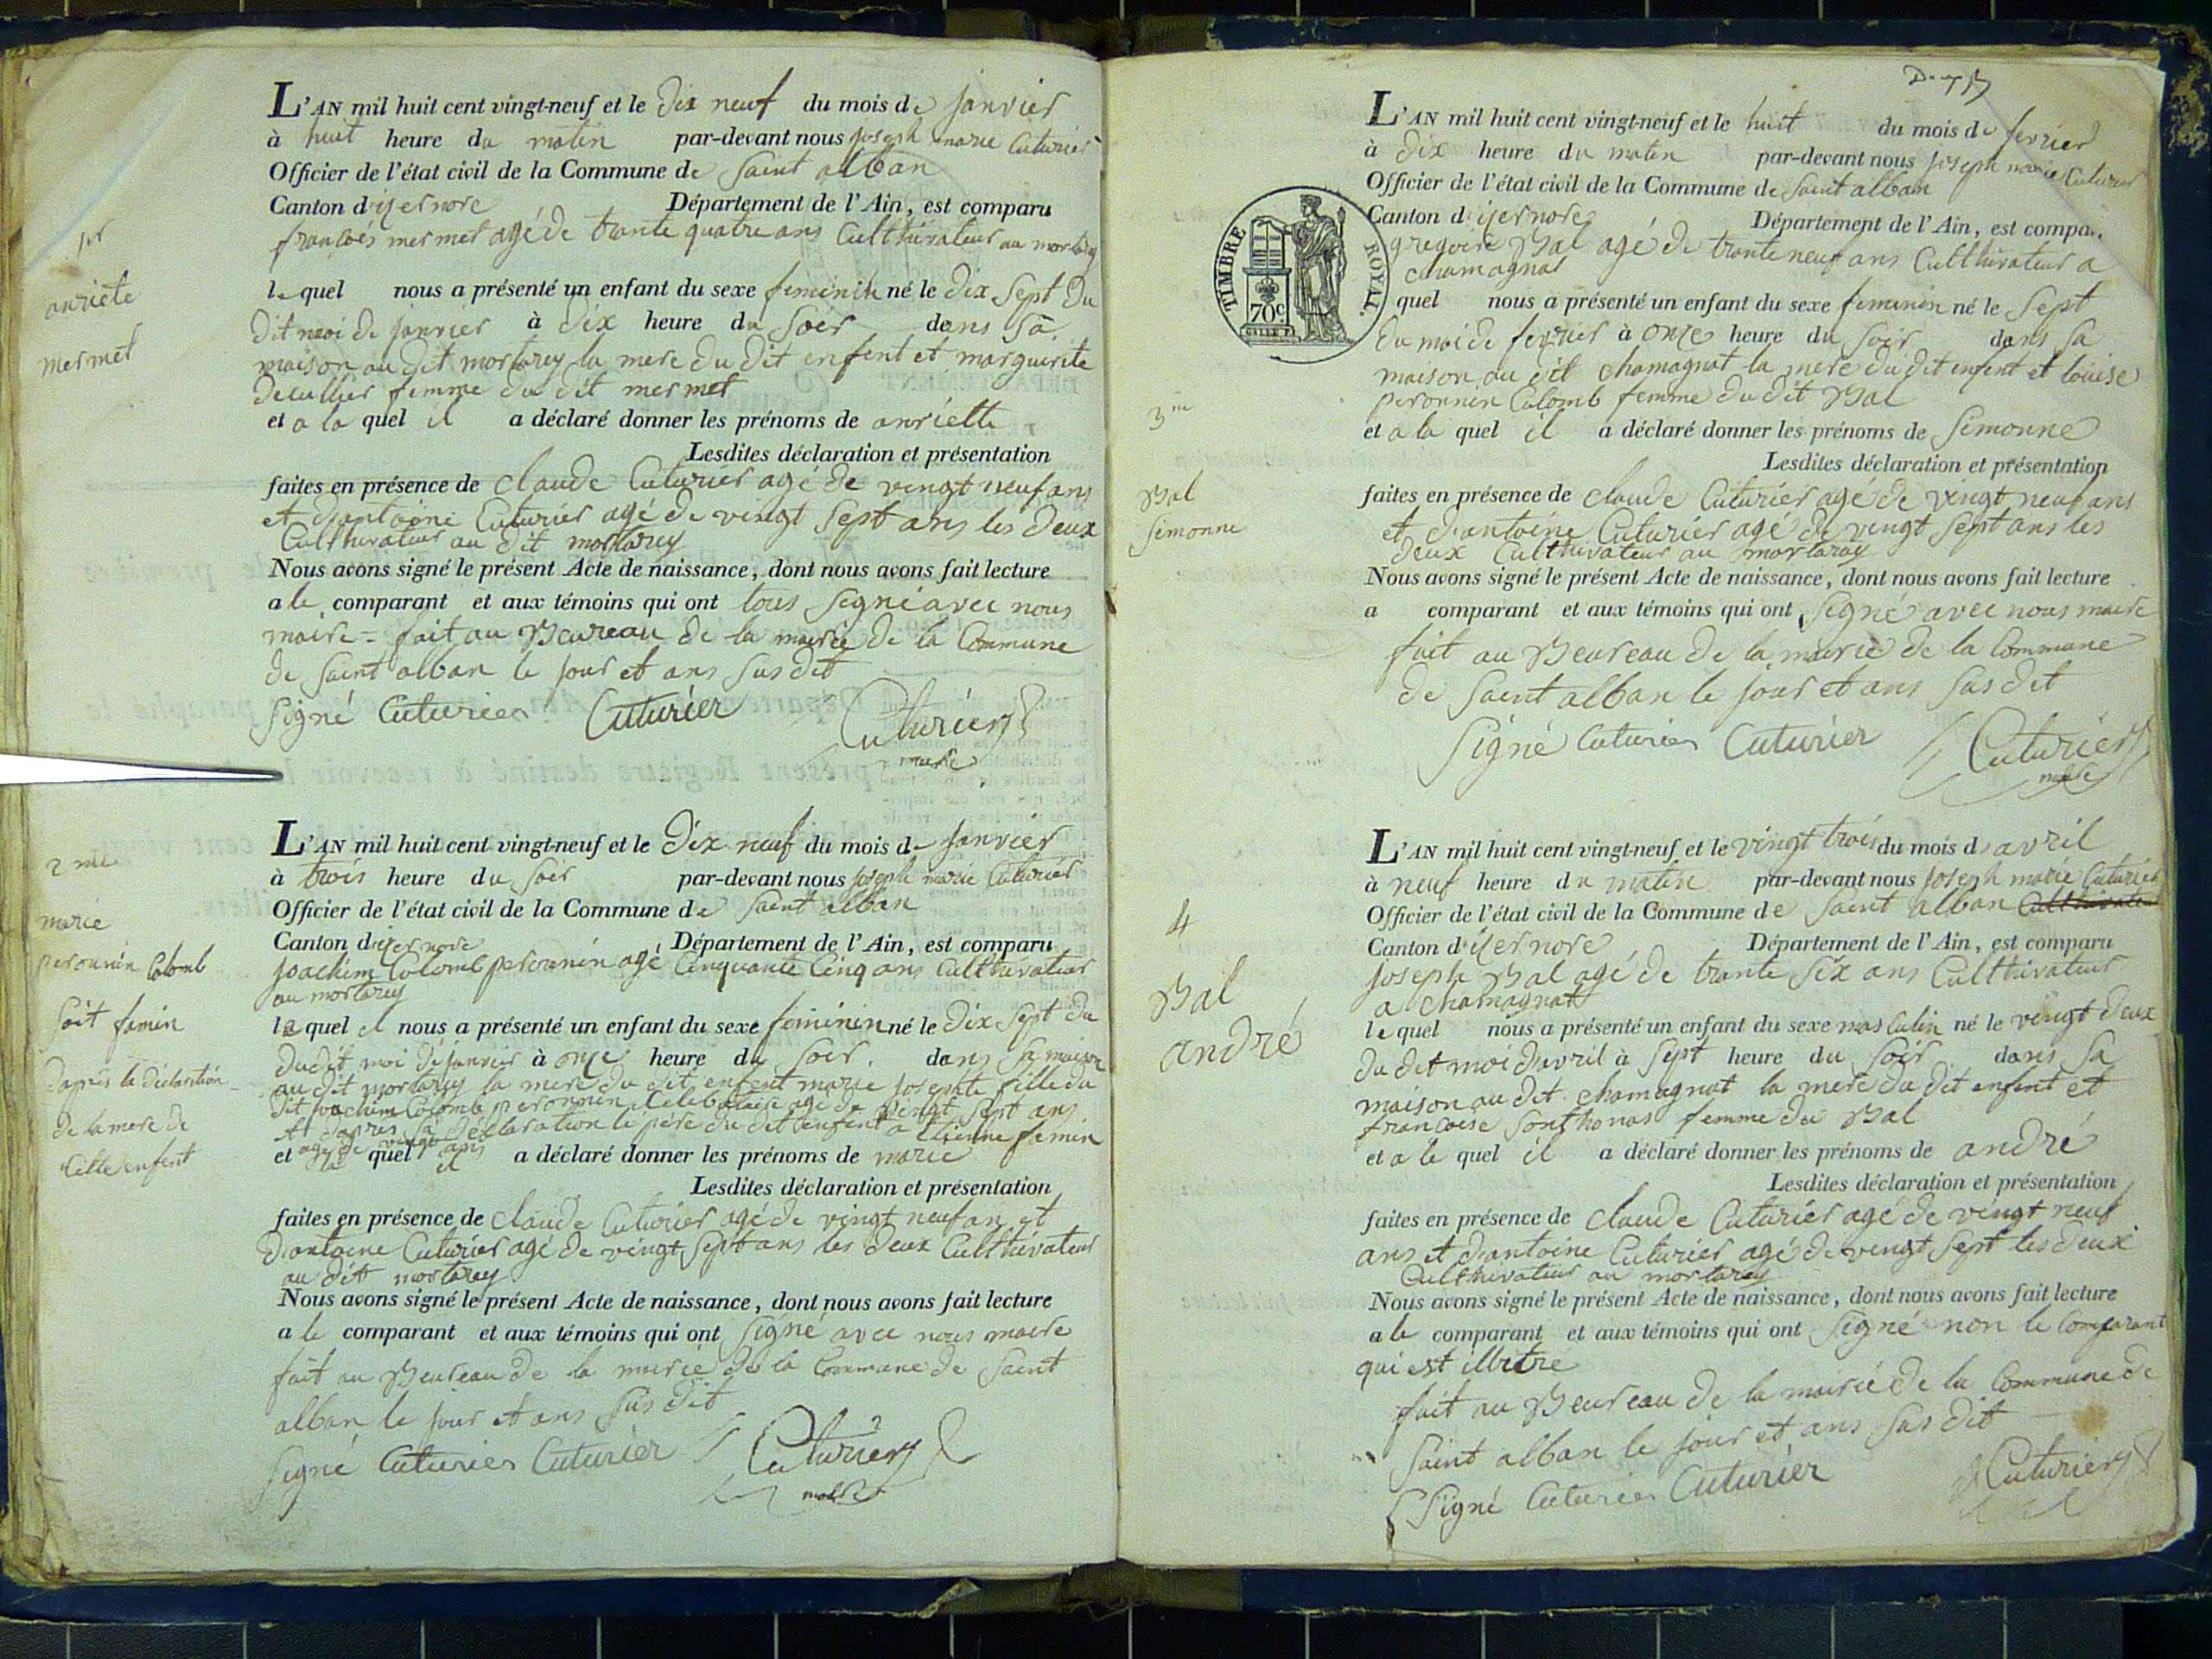 1er
anriete
mermet
L'AN mil huit cent vingt-neuf et le dix neuf du mois de janvier
à huit heure du matin par-devant nous joseph marie Cuturier
Officier de l'état civil de la Commune de saint alban
Canton d'izernore Département de l'Ain, est comparu
françois mermet agé de trante quatre ans Culthivateur au mortarey
le quel nous a présenté un enfant du sexe feminin né le dix sept du
dit moi de janvier à dix heure du soir dans sa
maison au dit mortarey la mere du dit enfent et marguerite
femme du dit mermet
et a la quel il a déclaré donner les prénoms de anriette
Lesdites déclaration et présentation
faites en présence de claude Cuturier agé de vingt neuf ans
et d'antoine Cuturier agé de vingt sept ans les deux
Culthivateur au dit mortarey
Nous avons signé le présent Acte de naissance, dont nous avons fait lecture
a le comparant et aux témoins qui ont tous signé avec nous
maire = fait au Beureau de la mairie de la Commune
de saint alban le jour et ans susdit
signé Cuturier Cuturier Cuturier
maire
2me
marie
perounin Colomb
soit famin
d'apprès la déclaration
de la mere de
cette enfent
L'AN mil huit cent vingt-neuf et le dix neuf du mois de janvier
à trois heure du soir par-devant nous joseph marie Cuturier
Officier de l'état civil de la Commune de saint alban
Canton d'izernore Département de l'Ain, est comparu
joachim Colomb perounin agé Cinquante Cinq ans Culthivateur
au mortarey
le quel il nous a présenté un enfant du sexe feminin né le dix sept du
dudit moi de janvier à onze heure du soir dans sa maison
au dit mortarey la mere du dit enfent marie josephte fille du
dit joachim Colomb peronnin Celebataire agé de vingt sept ans
et d'apres sa déclaration le père du dit enfent a etienne famin
agé de vingt ans
et a la quel il a déclaré donner les prénoms de marie
Lesdites déclaration et présentation
faites en présence de claude Cuturier agé de vingt neuf an et
d'antoine Cuturier agé de vingt sept ans les deux Culthivateur
au dit mortarey
Nous avons signé le présent Acte de naissance, dont nous avons fait lecture
a le comparant et aux témoins qui ont signé avec nous maire
fait au Beureau de la mairie de la Commune de saint
alban le jour et ans susdit
signé Cuturier Cuturier Cuturier
maire
L'AN mil huit cent vingt-neuf et le huit du mois de fevrier
à dix heure du matin par-devant nous joseph marie Cuturier
Officier de l'état civil de la Commune de saint alban
Canton d'izernore Département de l'Ain, est compa..
TIMBRE ROYAL
70c
gregoire Bal agé de trante neuf ans Culthivateur a
chamagnat
quel nous a présenté un enfant du sexe feminin né le sept
du moi de fevrier à onze heure du soir dans sa
maison au dit chamagnat la mere du dit enfent et louise
peronnin Colomb femme du dit Bal
3me
Bal
simonne
et a la quel il a déclaré donner les prénoms de simonne
Lesdites déclaration et présentation
faites en présence de claude Cuturier agé de vingt neuf ans
et d'antoine Cuturier agé de vingt sept ans les
deux Culthivateur au mortaray
Nous avons signé le présent Acte de naissance, dont nous avons fait lecture
a comparant et aux témoins qui ont signé avec nous maire
fait au Beureau de la mairie de la Commune
de saint alban le jour et ans susdit
signé Cuturier Cuturier Cuturier
maire
4
Bal
andré
L'AN mil huit cent vingt-neuf et le vingt trois du mois d avril
à neuf heure du matin par-devant nous joseph marie Cuturier
Officier de l'état civil de la Commune de saint alban Culthivateur
Canton d'izernore Département de l'Ain, est comparu
joseph Bal agé de trante six ans Culthivateur
a chamagnat
le quel nous a présenté un enfant du sexe masculin né le vingt deux
du dit moi d'avril à sept heure du soir dans sa
maison au dit chamagnat la mere du dit enfent et
francoise sonthonas femme du Bal
et a le quel il a déclaré donner les prénoms de andré
Lesdites déclaration et présentation
faites en présence de claude Cuturier agé de vingt neuf
ans et d'antoine Cuturier agé de vingt sept les deux
Culthivateur au mortarey
Nous avons signé le présent Acte de naissance, dont nous avons fait lecture
a le comparant et aux témoins qui ont signé non le Comparant
qui est illitré
fait au Beureau de la mairie de la Commune de
saint alban le jour et ans susdit
signé Cuturier Cuturier Cuturier